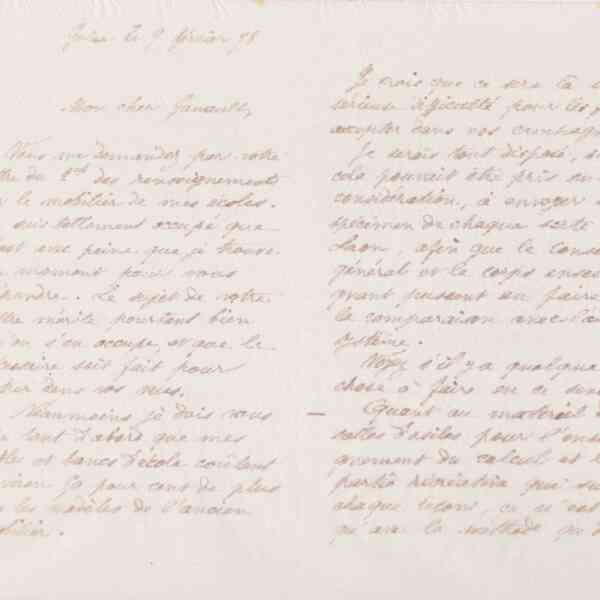 le 9 février 78
Mon cher
Vous me demandez par votre
tre du 2 des renseignements
r le mobilier de mes écoles.
suis tellement occupé que
est avec peine que je trouve
moment pour vous
épondre. Le sujet de votre
ttre mérite pourtant bien
u'on s'en occupe, et avec le
soit fait pour
dans vos vues.
Néanmoins je dois vous
tout d'abord que mes
bles et bancs d'école coûtent
viron 50 pour cent de plus
e les modèles de l'ancien
obilier.
Je crois que ce sera là
sérieuse difficulté pour les
accepter dans nos
Je serais tout disposé, si
cela pouvait être pris en
considération, à envoyer
spécimen de chaque sorte
Laon, afin que le conse
général et le corps ensei
gnant pussent en faire
la comparaison avec l'
système.
Voyez s'il y a quelque
chose à faire en ce sens
Quant au matériel
salles d'asiles pour l'ense
gnement du calcul et
partie récréative qui
chaque leçons, ce n'est
qu'avec la méthode qu